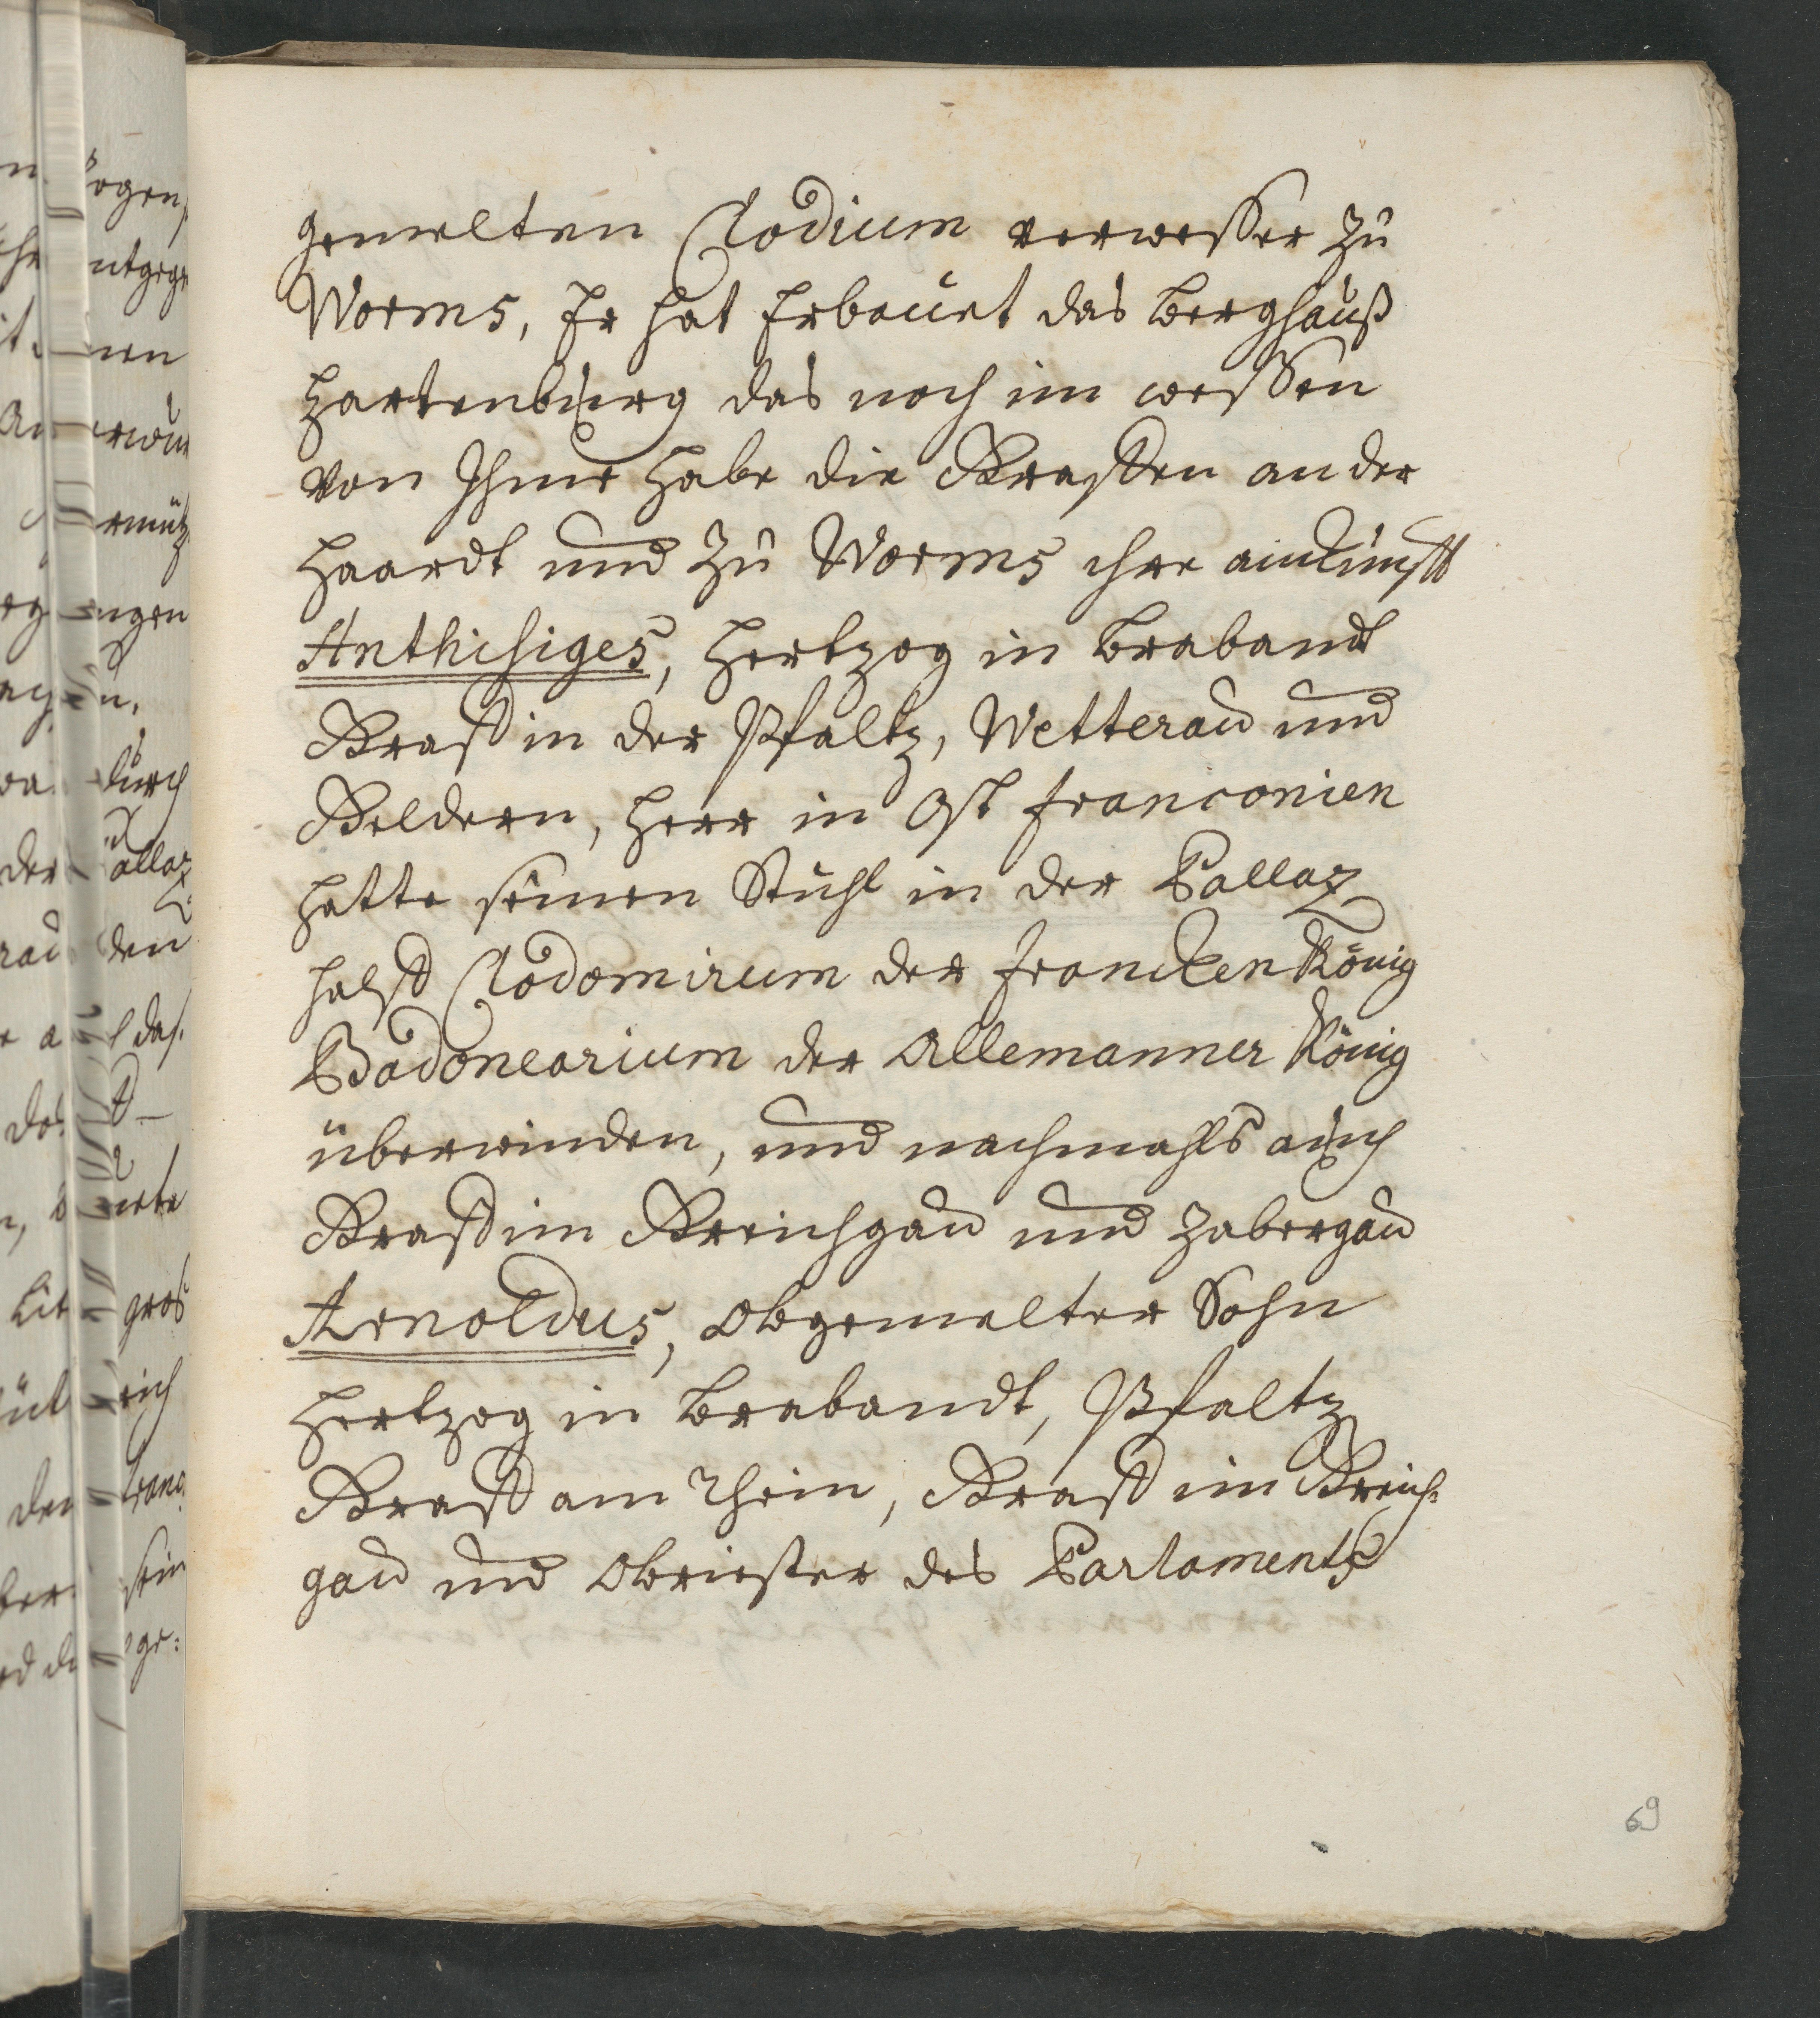 gemelten Clodium verweßer zu
Worms, Er hat Erbauet das Berghauß
Hartenburg das noch im weßen
von Ihme habe die Graffen an der
Haardt und zu Worms ihre ankunfft
Anthisiges, Hertzog in Braband
Graff in der Pfaltz, Wetterau und
Geldern, Herr in Ost franconien
hatte seinen Stuhl in der Pallaz
halff Clodomirum der francken König
Badonearium der Allemanner König
überwinden, und nachmahls auch
Graff im Greichgau und Zabergau
Arnoldus, obgemelter Sohn
Hertzog in Brabandt, Pfaltz
Graff am Rhein, Graff im Greich=
gau und Obriester des Parlaments
69